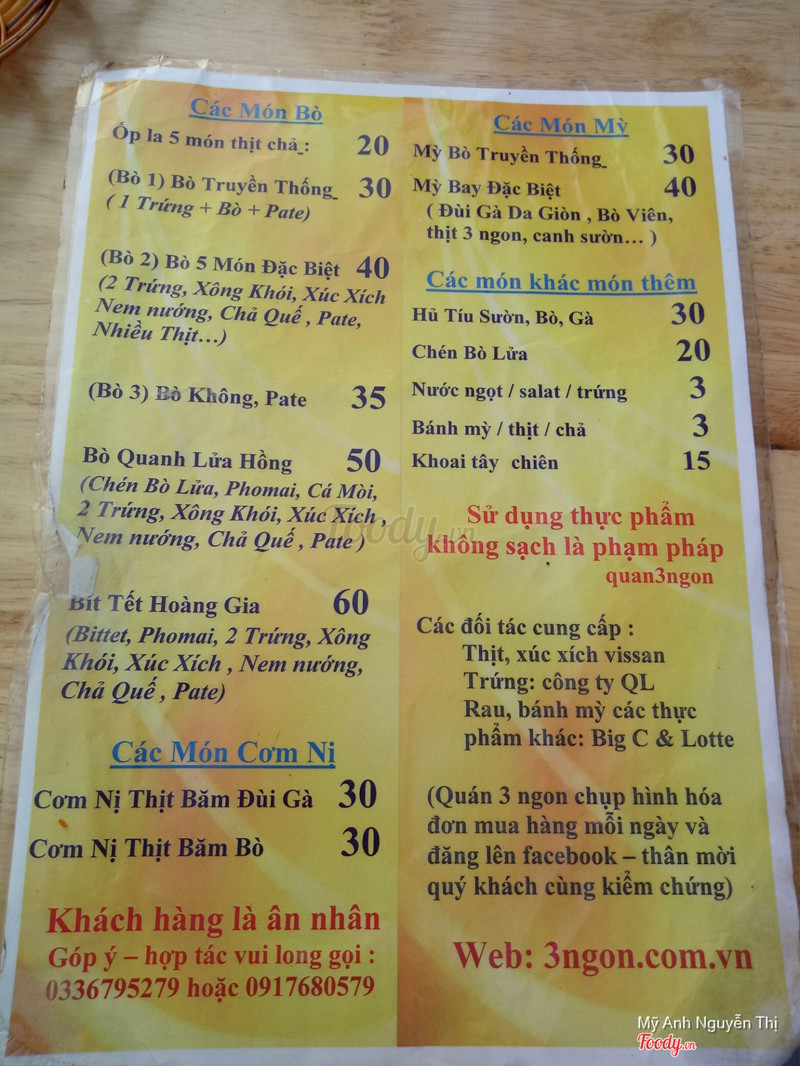 Các Món Bò
Ốp la 5 món thịt chả : 20
(Bò 1) Bò Truyền Thống 30
( 1 Trứng + Bò + Pate)
(Bò 2) Bò 5 Món Đặc Biệt 40
(2 Trứng, Xông Khói, Xúc Xích
Nem nướng, Chả Quế , Pate,
Nhiều Thịt…)
(Bò 3) Bò Không, Pate 35
Bò Quanh Lửa Hồng 50
(Chén Bò Lửa, Phomai, Cá Mòi,
2 Trứng, Xông Khói, Xúc Xích ,
Nem nướng, Chả Quế , Pate )
Bít Tết Hoàng Gia 60
(Bittet, Phomai, 2 Trứng, Xông
Khói, Xúc Xích , Nem nướng,
Chả Quế , Pate)
Các Món Cơm Nị
Cơm Nị Thịt Băm Đùi Gà 30
Cơm Nị Thịt Băm Bò 30
Khách hàng là ân nhân
Góp ý – hợp tác vui long gọi :
0336795279 hoặc 0917680579
Các Món Mỳ
Mỳ Bò Truyền Thống 30
Mỳ Bay Đặc Biệt 40
( Đùi Gà Da Giòn , Bò Viên,
thịt 3 ngon, canh sườn… )
Các món khác món thêm
Hủ Tíu Sườn, Bò, Gà 30
Chén Bò Lửa 20
Nước ngọt / salat / trứng 3
Bánh mỳ / thịt / chả 3
Khoai tây chiên 15
Sử dụng thực phẩm
không sạch là phạm pháp
quan3ngon
Các đối tác cung cấp :
Thịt, xúc xích vissan
Trứng: công ty QL
Rau, bánh mỳ các thực
phẩm khác: Big C & Lotte
(Quán 3 ngon chụp hình hóa
đơn mua hàng mỗi ngày và
đăng lên facebook – thân mời
quý khách cùng kiểm chứng)
Web: 3ngon.com.vn
Foody.vn
Mỹ Anh Nguyễn Thị
Foody.vn